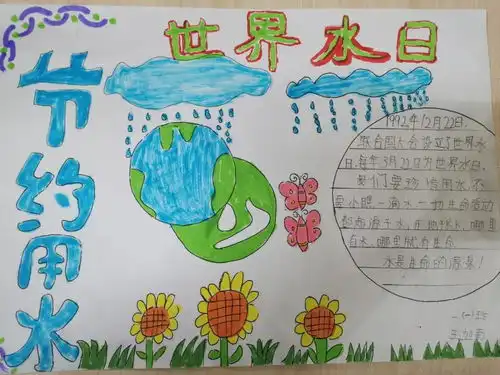 世界水日
节约用水
1992年12月22日,
联合国大会设立了世界水
日.每年3月22日为世界水日.
我们要珍惜用水,不
要小瞧一滴水一切生命活动
都
水,
哪里
有水,哪里就有生命.
水是生命的源泉!
一(一)班